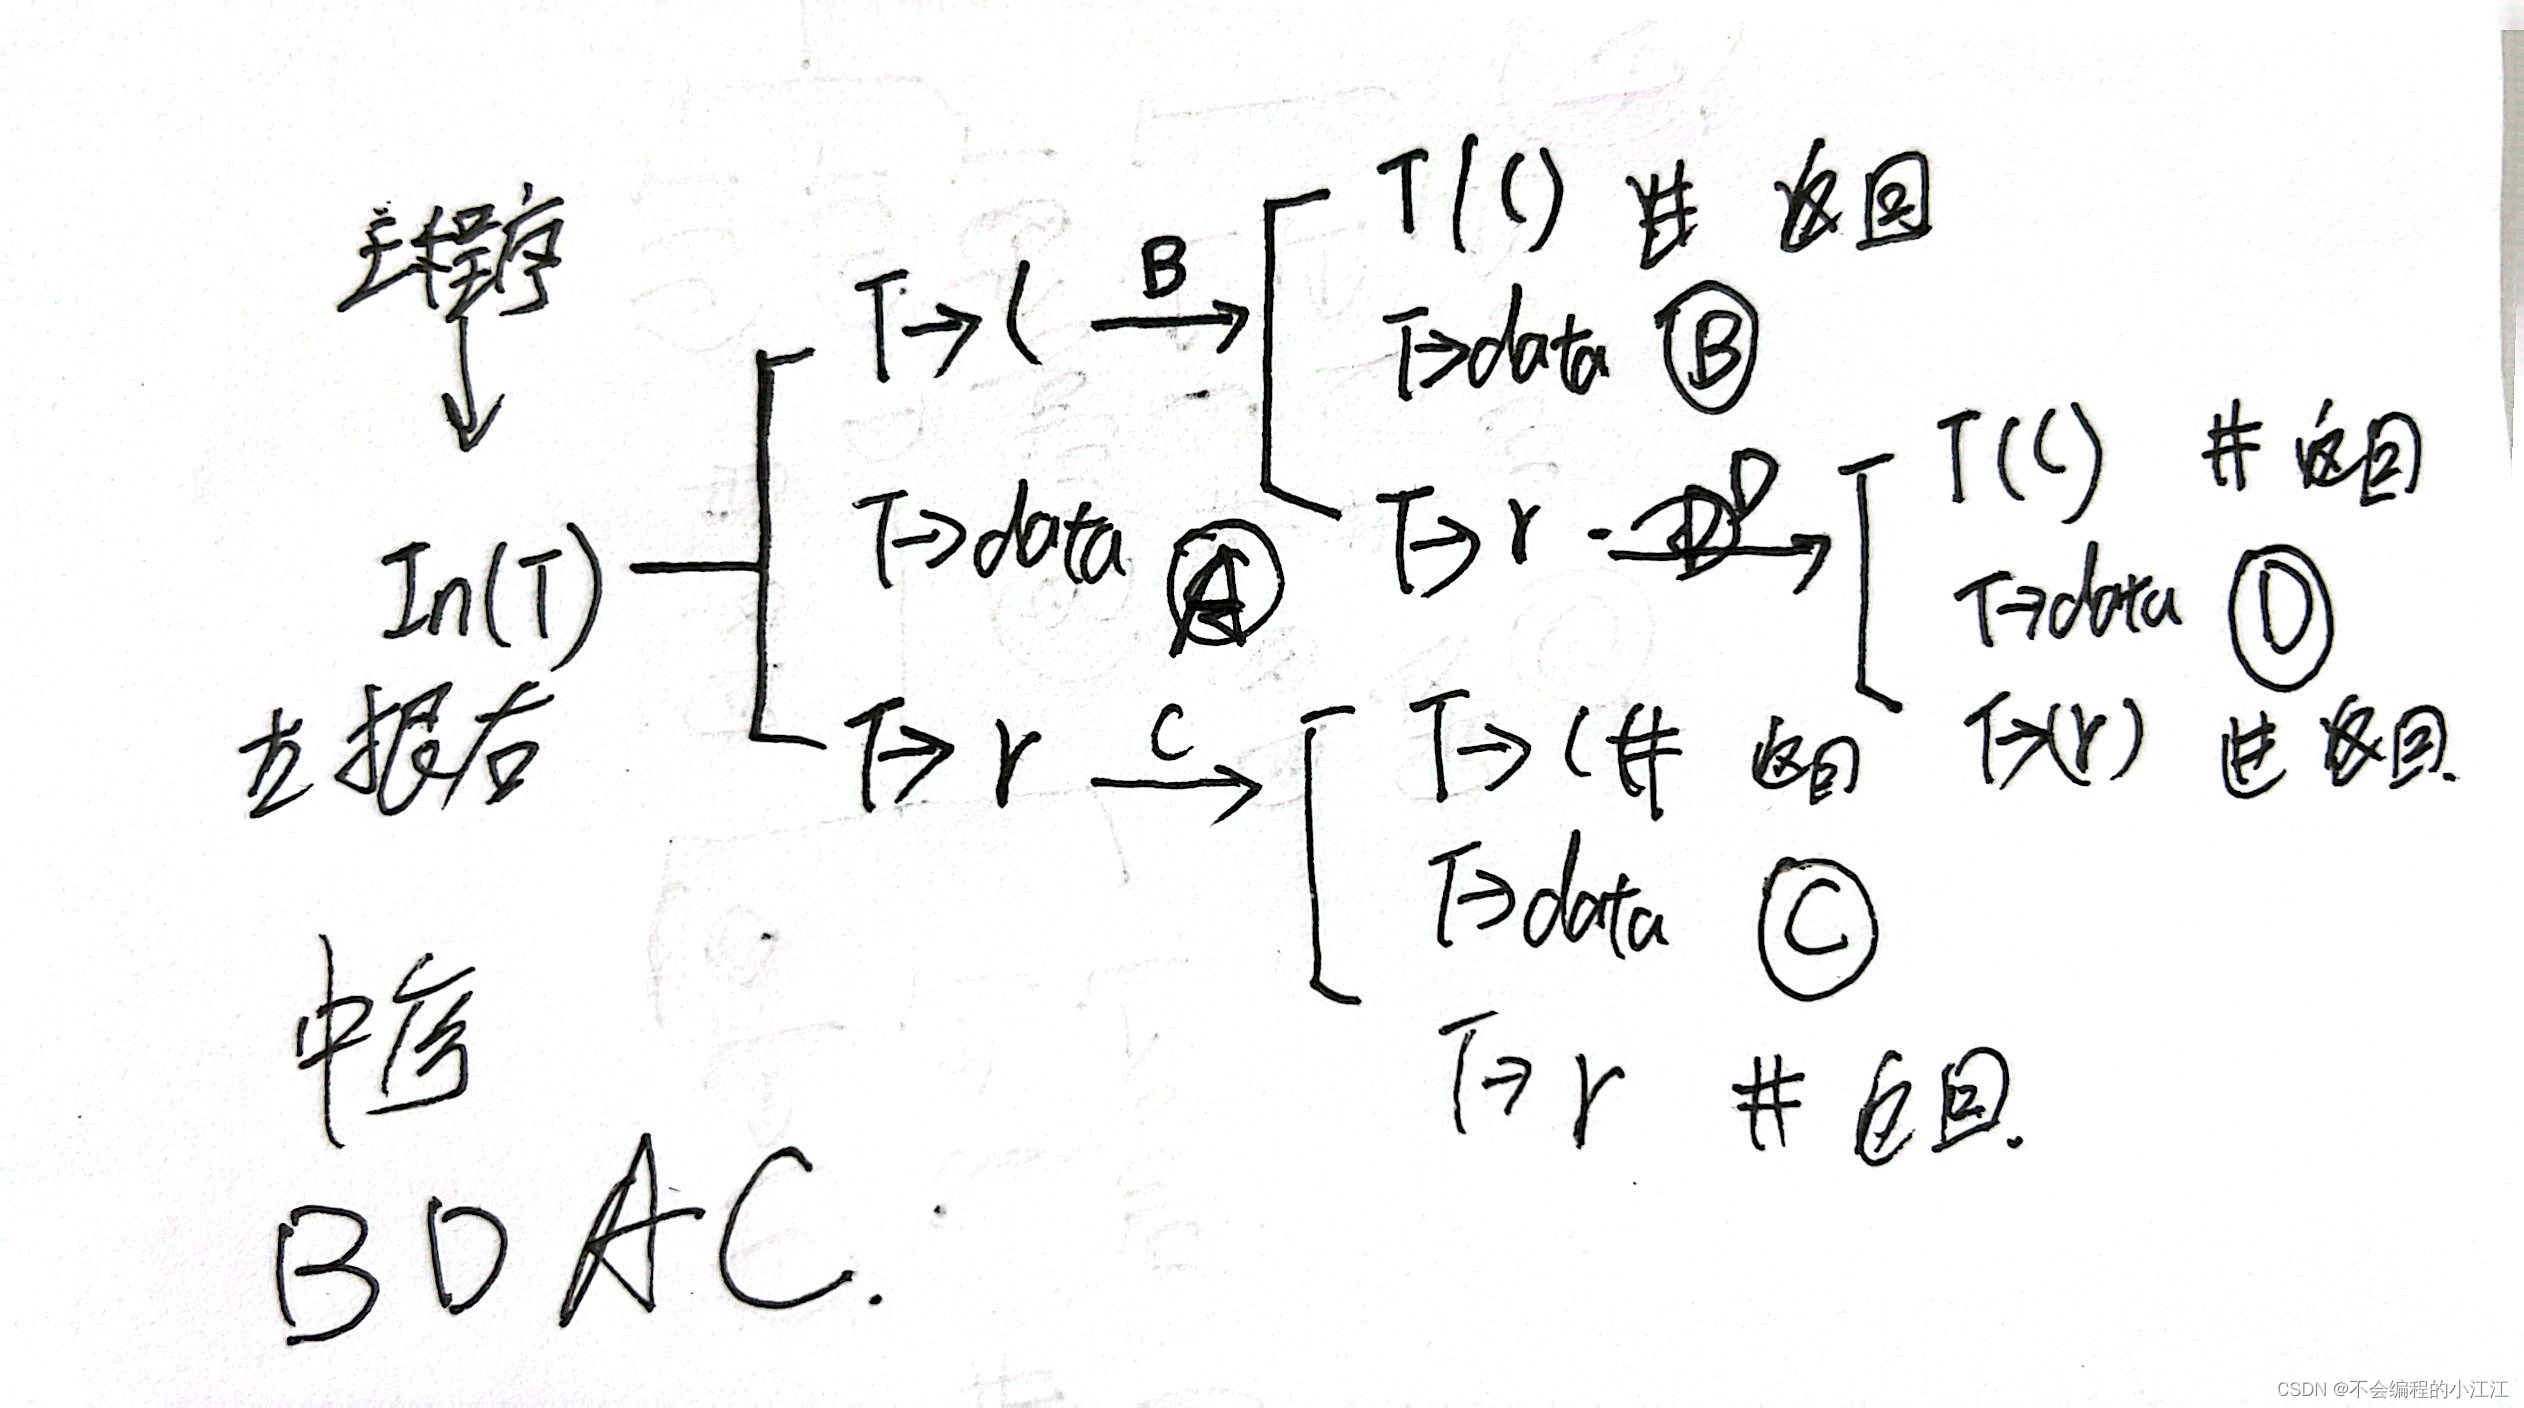 主程序
In(T)
左根右
中序
B D A C.
T→l
B
T→data Ⓐ
T→r
C
T(l) # 返回
T→data Ⓑ
T→r
D
T(l) # 返回
T→data Ⓓ
T→(r) # 返回.
T→l # 返回
T→data Ⓒ
T→r # 返回.
CSDN @不会编程的小江江